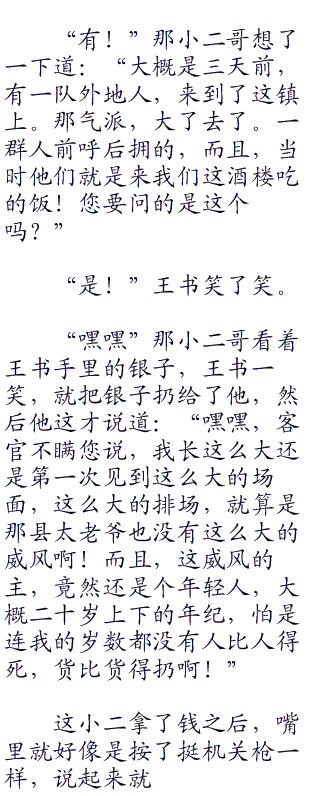 “有！”那小二哥想了
一下道：“大概是三天前，
有一队外地人，来到了这镇
上。那气派，大了去了。一
群人前呼后拥的，而且，当
时他们就是来我们这酒楼吃
的饭！您要问的是这个
吗？”
“是！”王书笑了笑。
“嘿嘿”那小二哥看着
王书手里的银子，王书一
笑，就把银子扔给了他，然
后他这才说道：“嘿嘿，客
官不瞒您说，我长这么大还
是第一次见到这么大的场
面，这么大的排场，就算是
那县太老爷也没有这么大的
威风啊！而且，这威风的
主，竟然还是个年轻人，大
概二十岁上下的年纪，怕是
连我的岁数都没有人比人得
死，货比货得扔啊！”
这小二拿了钱之后，嘴
里就好像是按了挺机关枪一
样，说起来就